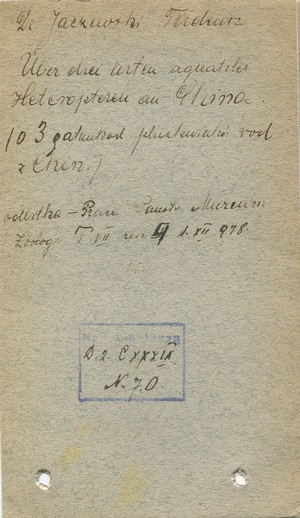 Dr Jaczewski Tadeusz
Über drei Arten aquatiler
Heteropteren aus China.
(o 3 gatunkach pluskwiaków wod
z Chin.)
odbitka – Prac Państw. Muzeum
Zoolog. T VII zesz 4 d. XII 1928.
D. 2. CXXXIX
N. 70.